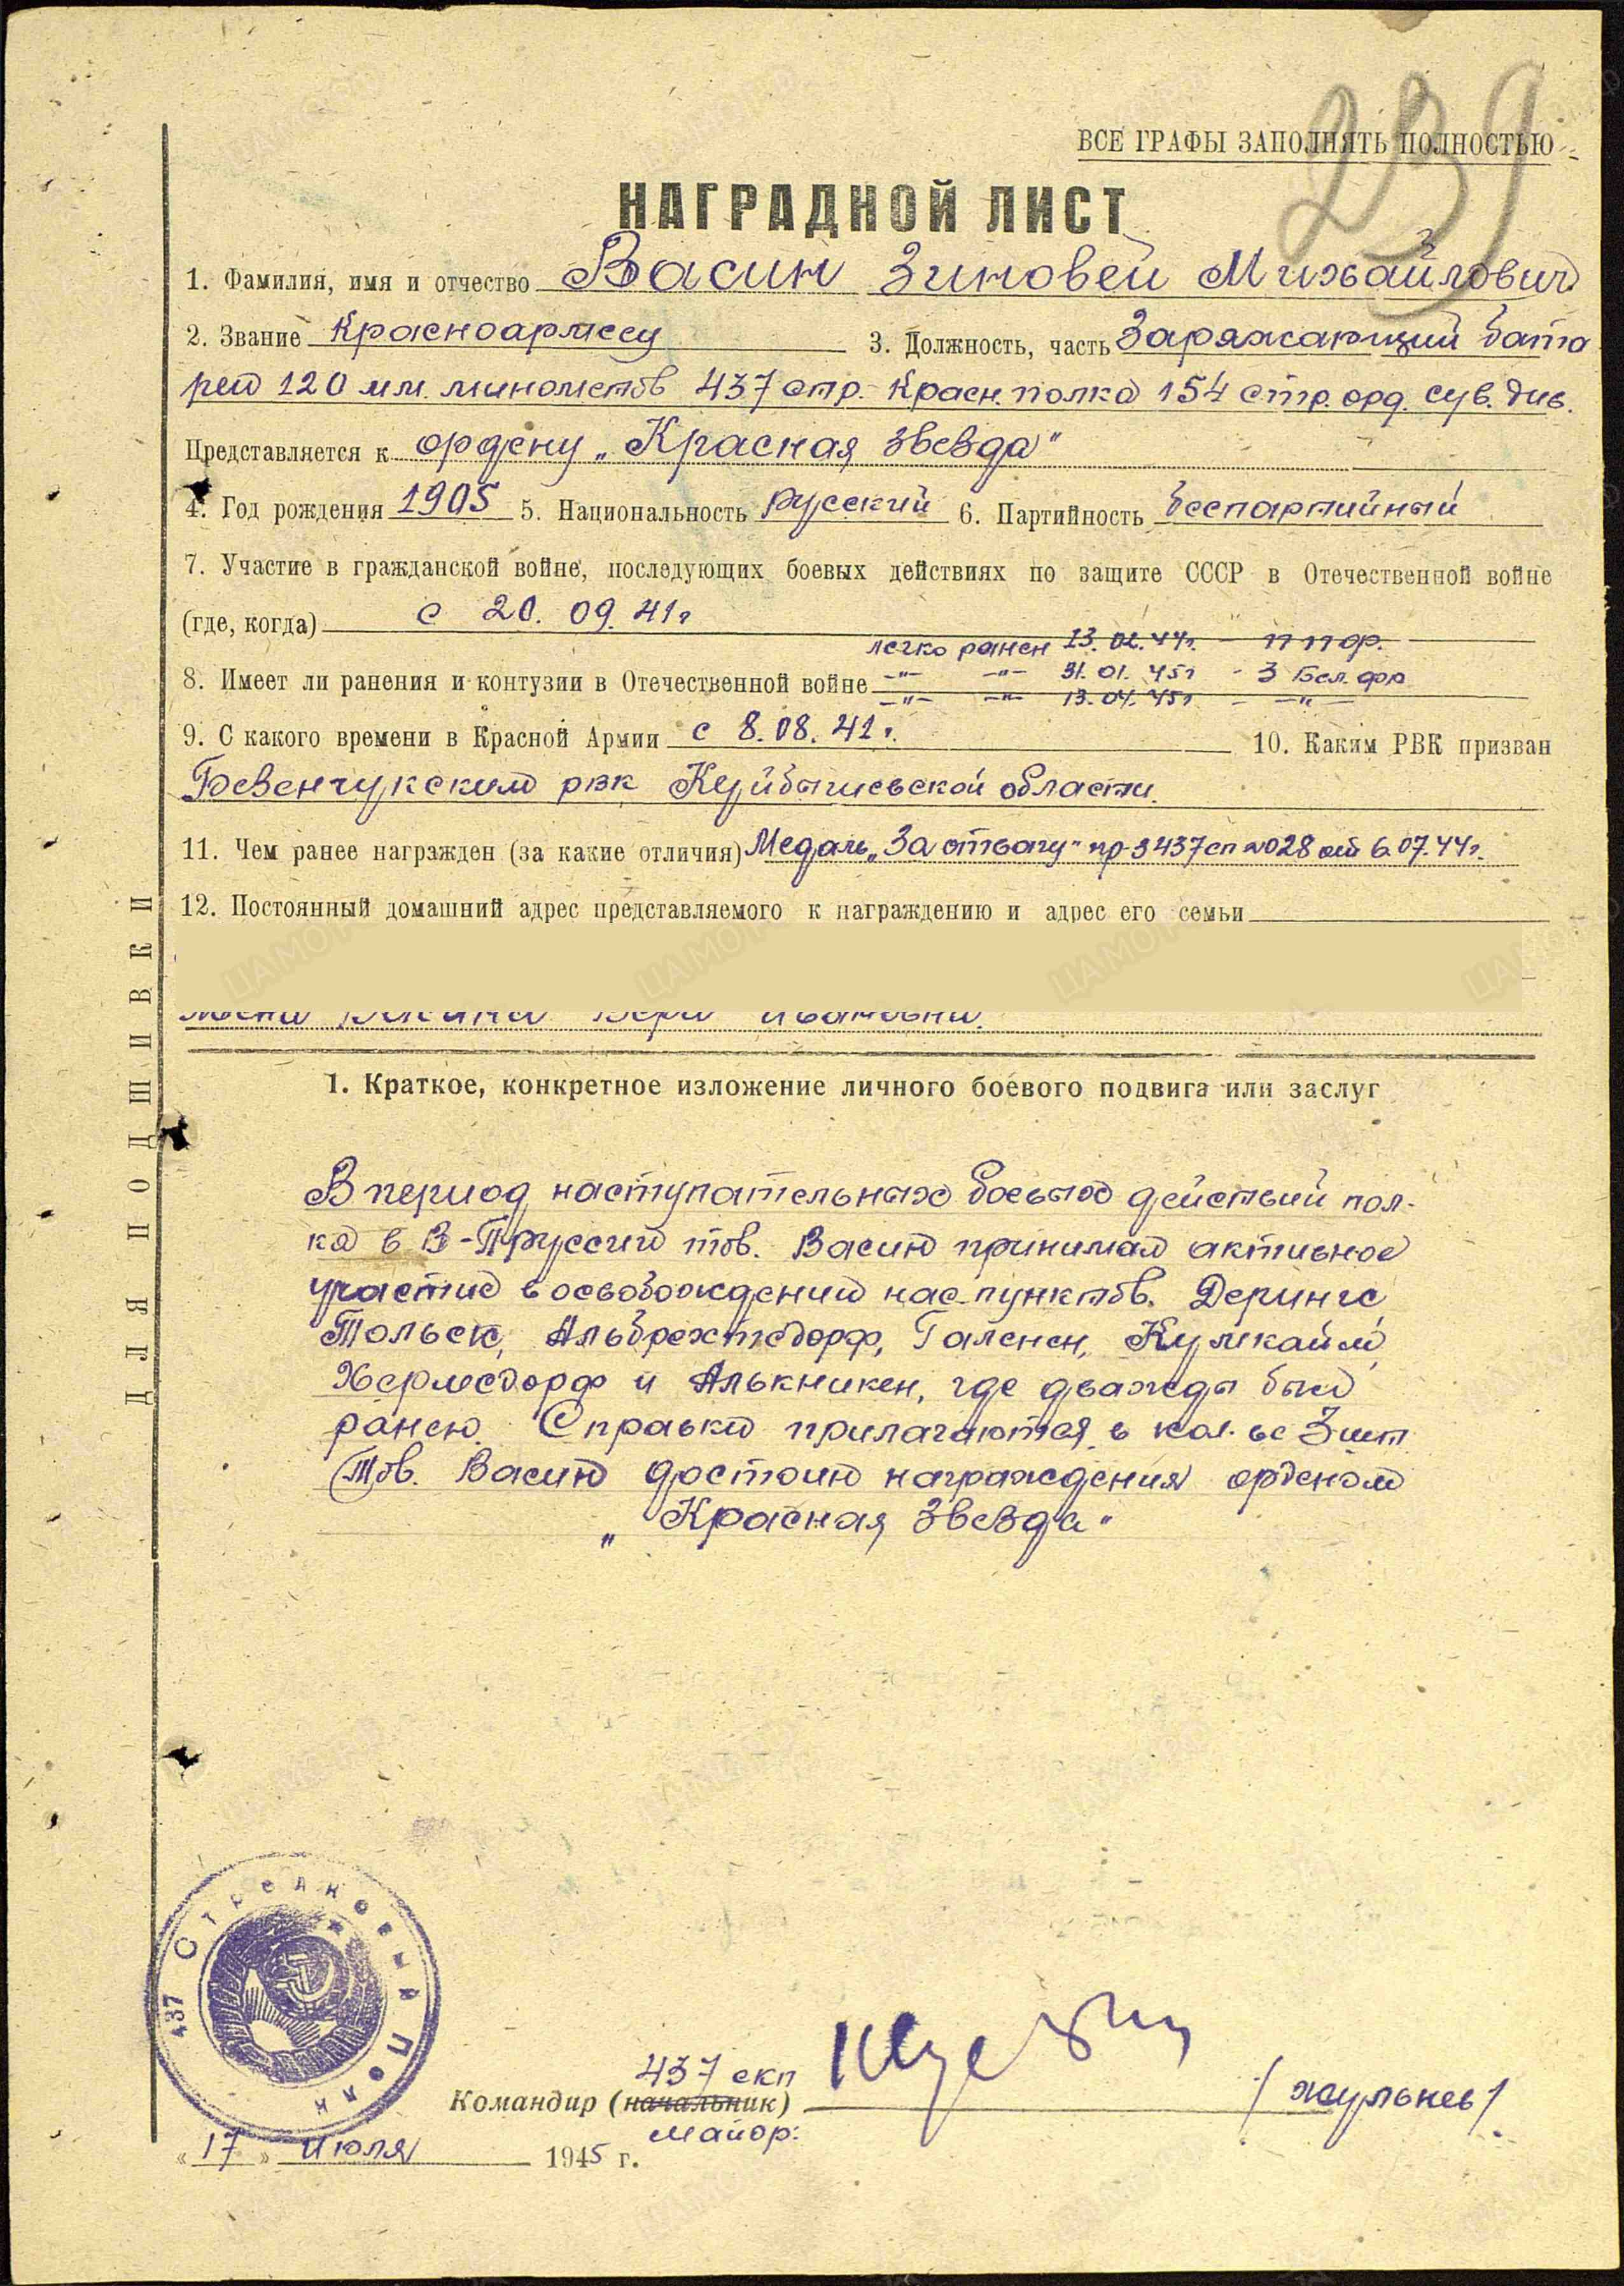 239
ВСЕ ГРАФЫ ЗАПОЛНЯТЬ ПОЛНОСТЬЮ
НАГРАДНОЙ ЛИСТ
1. Фамилия, имя и отчество Васин Зиновей Михайлович
2. Звание Красноармеец 3. Должность, часть Заряжающий бата
реи 120 мм. минометов 437 стр. Красн. полка 154 стр. орд. Сув. див.
Представляется к ордену „Красная Звезда"
4. Год рождения 1905 5. Национальность русский 6. Партийность беспартийный
7. Участие в гражданской войне, последующих боевых действиях по защите СССР в Отечественной войне
(где, когда) с 20.09.41г
легко ранен 13.02.44г. - 1 П фр.
8. Имеет ли ранения и контузии в Отечественной войне -"- -"- 31.01.45г - 3 Бел. фр
-"- -"- 13.04.45г - -"-
9. С какого времени в Красной Армии с 8.08.41г. 10. Каким РВК призван
Безенчукским рвк Куйбышевской области.
11. Чем ранее награжден (за какие отличия) Медаль „За отвагу" пр-з 437 сп №028 от 6.07.44г.
12. Постоянный домашний адрес представляемого к награждению и адрес его семьи
1. Краткое, конкретное изложение личного боевого подвига или заслуг
В период наступательных боевых действий пол-
ка в В-Пруссии тов. Васин принимал активное
участие в освобождении нас. пунктов. Дерингс
Тольск, Альбрехтсдорф, Галенен, Кумкайм,
Хермсдорф и Алькникен, где дважды был
ранен. Справки прилагаются в кол-ве 3 шт
Тов. Васин достоин награждения орденом
„Красная Звезда"
ДЛЯ ПОДШИВКИ
437 Стрелковый Полк
437 скп
Командир (начальник) /Жульнев/
майор:
«17» июля 1945 г.